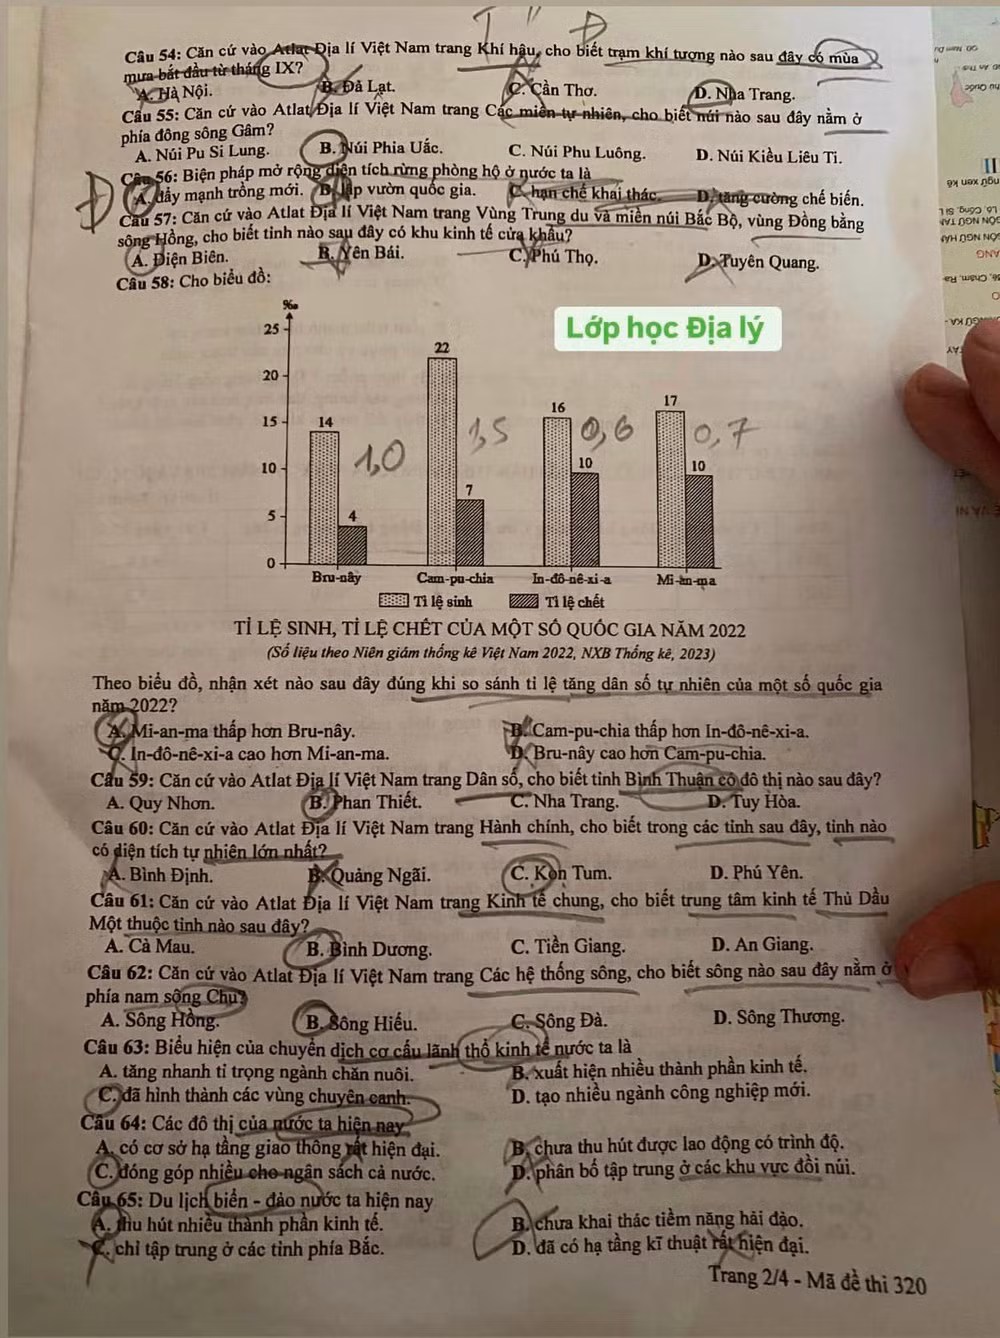 Câu 54: Căn cứ vào Atlat Địa lí Việt Nam trang Khí hậu, cho biết trạm khí tượng nào sau đây có mùa
mưa bắt đầu từ tháng IX?
A. Hà Nội. B. Đà Lạt. C. Cần Thơ. D. Nha Trang.
Câu 55: Căn cứ vào Atlat Địa lí Việt Nam trang Các miền tự nhiên, cho biết núi nào sau đây nằm ở
phía đông sông Gâm?
A. Núi Pu Si Lung. B. Núi Phia Uắc. C. Núi Phu Luông. D. Núi Kiều Liêu Ti.
Câu 56: Biện pháp mở rộng diện tích rừng phòng hộ ở nước ta là
A. đẩy mạnh trồng mới. B. lập vườn quốc gia. C. hạn chế khai thác. D. tăng cường chế biến.
Câu 57: Căn cứ vào Atlat Địa lí Việt Nam trang Vùng Trung du và miền núi Bắc Bộ, vùng Đồng bằng
sông Hồng, cho biết tỉnh nào sau đây có khu kinh tế cửa khẩu?
A. Điện Biên. B. Yên Bái. C. Phú Thọ. D. Tuyên Quang.
Câu 58: Cho biểu đồ:
‰
Lớp học Địa lý
25
20
15
10
5
0
14 4 1,0
22 7 1,5
16 10 0,6
17 10 0,7
Bru-nây Cam-pu-chia In-đô-nê-xi-a Mi-an-ma
Tỉ lệ sinh Tỉ lệ chết
TỈ LỆ SINH, TỈ LỆ CHẾT CỦA MỘT SỐ QUỐC GIA NĂM 2022
(Số liệu theo Niên giám thống kê Việt Nam 2022, NXB Thống kê, 2023)
Theo biểu đồ, nhận xét nào sau đây đúng khi so sánh tỉ lệ tăng dân số tự nhiên của một số quốc gia
năm 2022?
A. Mi-an-ma thấp hơn Bru-nây. B. Cam-pu-chia thấp hơn In-đô-nê-xi-a.
C. In-đô-nê-xi-a cao hơn Mi-an-ma. D. Bru-nây cao hơn Cam-pu-chia.
Câu 59: Căn cứ vào Atlat Địa lí Việt Nam trang Dân số, cho biết tỉnh Bình Thuận có đô thị nào sau đây?
A. Quy Nhơn. B. Phan Thiết. C. Nha Trang. D. Tuy Hòa.
Câu 60: Căn cứ vào Atlat Địa lí Việt Nam trang Hành chính, cho biết trong các tỉnh sau đây, tỉnh nào
có diện tích tự nhiên lớn nhất?
A. Bình Định. B. Quảng Ngãi. C. Kon Tum. D. Phú Yên.
Câu 61: Căn cứ vào Atlat Địa lí Việt Nam trang Kinh tế chung, cho biết trung tâm kinh tế Thủ Dầu
Một thuộc tỉnh nào sau đây?
A. Cà Mau. B. Bình Dương. C. Tiền Giang. D. An Giang.
Câu 62: Căn cứ vào Atlat Địa lí Việt Nam trang Các hệ thống sông, cho biết sông nào sau đây nằm ở
phía nam sông Chu?
A. Sông Hồng. B. Sông Hiếu. C. Sông Đà. D. Sông Thương.
Câu 63: Biểu hiện của chuyển dịch cơ cấu lãnh thổ kinh tế nước ta là
A. tăng nhanh tỉ trọng ngành chăn nuôi. B. xuất hiện nhiều thành phần kinh tế.
C. đã hình thành các vùng chuyên canh. D. tạo nhiều ngành công nghiệp mới.
Câu 64: Các đô thị của nước ta hiện nay
A. có cơ sở hạ tầng giao thông rất hiện đại. B. chưa thu hút được lao động có trình độ.
C. đóng góp nhiều cho ngân sách cả nước. D. phân bố tập trung ở các khu vực đồi núi.
Câu 65: Du lịch biển - đảo nước ta hiện nay
A. thu hút nhiều thành phần kinh tế. B. chưa khai thác tiềm năng hải đảo.
C. chỉ tập trung ở các tỉnh phía Bắc. D. đã có hạ tầng kĩ thuật rất hiện đại.
Trang 2/4 - Mã đề thi 320